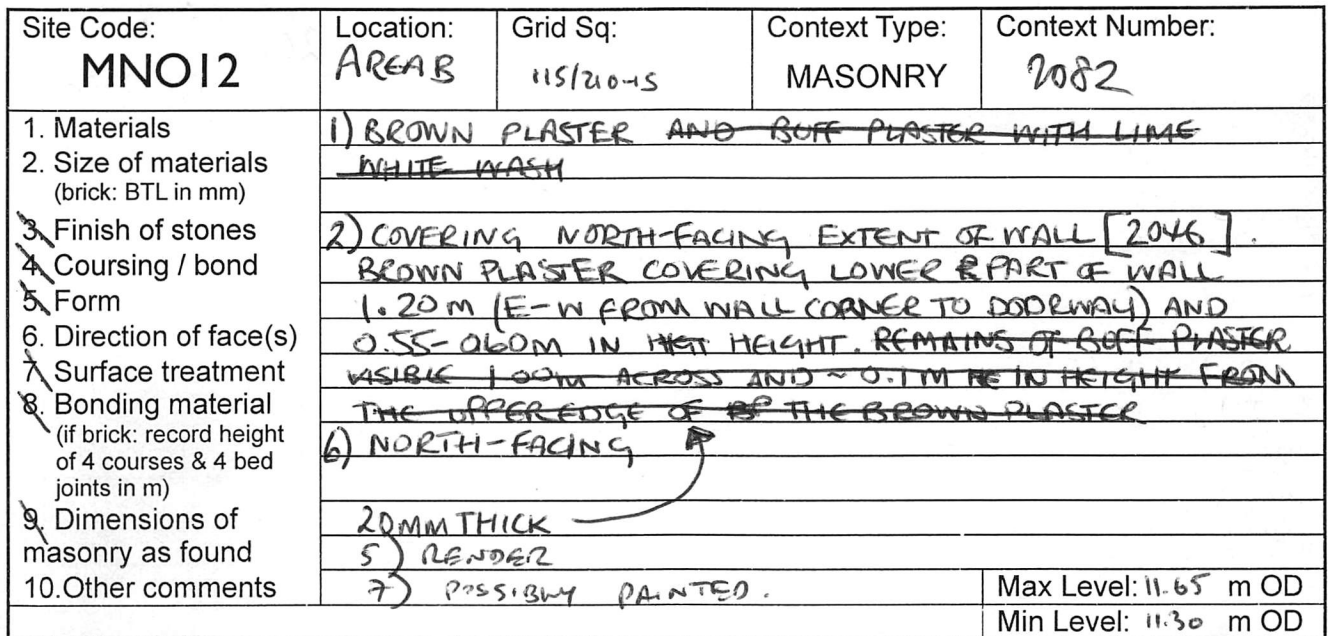 Site Code:
MNO12
Location:
AREA B
Grid Sq:
115/210-15
Context Type:
MASONRY
Context Number:
2082
1. Materials
2. Size of materials
(brick: BTL in mm)
3. Finish of stones
4. Coursing / bond
5. Form
6. Direction of face(s)
7. Surface treatment
8. Bonding material
(if brick: record height
of 4 courses & 4 bed
joints in m)
9. Dimensions of
masonry as found
10.Other comments
1) BROWN PLASTER AND BUFF PLASTER WITH LIME
WHITE WASH
2) COVERING NORTH-FACING EXTENT OF WALL [2046].
BROWN PLASTER COVERING LOWER PART OF WALL
1.20M (E-W FROM WALL CORNER TO DOORWAY) AND
0.55-060M IN HEIGHT. REMAINS OF BUFF PLASTER
VISIBLE 1.00M ACROSS AND ~0.1M IN HEIGHT FROM
THE UPPER EDGE OF THE BROWN PLASTER
6) NORTH-FACING
20MM THICK
5) RENDER
7) POSSIBLY PAINTED.
Max Level: 11.65 m OD
Min Level: 11.30 m OD